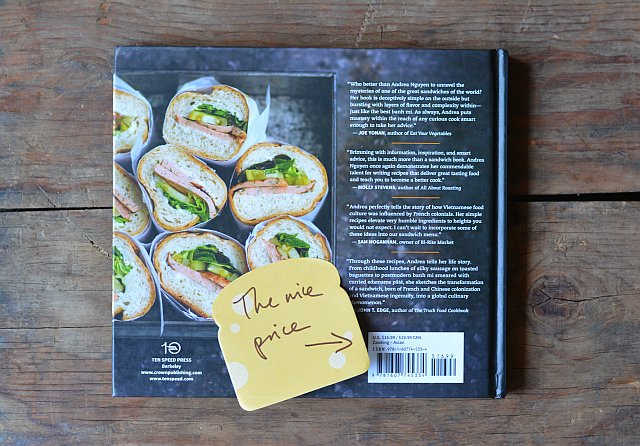 "Who better than Andrea Nguyen to unravel the
mysteries of one of the great sandwiches of the world?
Her book is deceptively simple on the outside but
bursting with layers of flavor and complexity within—
just like the best banh mi. As always, Andrea puts
mastery within the reach of any curious cook smart
enough to take her advice."
— JOE YONAN, author of Eat Your Vegetables
"Brimming with information, inspiration, and smart
advice, this is much more than a sandwich book. Andrea
Nguyen once again demonstrates her commendable
talent for writing recipes that deliver great tasting food
and teach you to become a better cook."
— MOLLY STEVENS, author of All About Roasting
"Andrea perfectly tells the story of how Vietnamese food
culture was influenced by French colonials. Her simple
recipes elevate very humble ingredients to heights you
would not expect. I can't wait to incorporate some of
these ideas into our sandwich menu."
— SAM MOGANNAM, owner of Bi-Rite Market
"Through these recipes, Andrea tells her life story.
From childhood lunches of silky sausage on toasted
baguettes to postmodern banh mi smeared with
curried edamame pâté, she sketches the transformation
of a sandwich, born of French and Chinese colonization
and Vietnamese ingenuity, into a global culinary
phenomenon."
JOHN T. EDGE, author of The Truck Food Cookbook
The nice
price
TEN SPEED PRESS
Berkeley
www.crownpublishing.com
www.tenspeed.com
U.S. $16.99 / $19.99 CAN
Cooking – Asian
ISBN 978-1-60774-533-4
51699
9 781607 745334